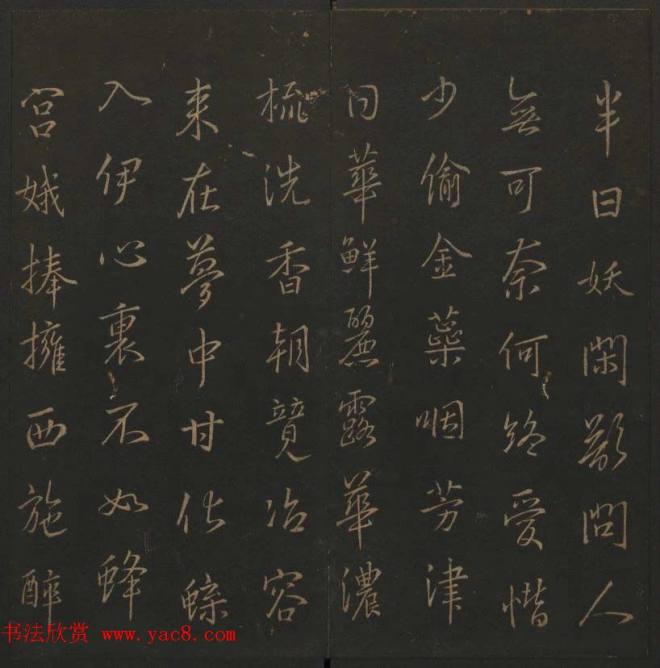 半日妖閑問人
無可奈何終愛惜
少偷金蘂咽芳津
華鮮麗露華濃
梳洗香朝覽冶容
来在夢中甘化蝶
入伊心裏不如蜂
宮娥捧擁西施醉
书法欣赏 www.yac8.com